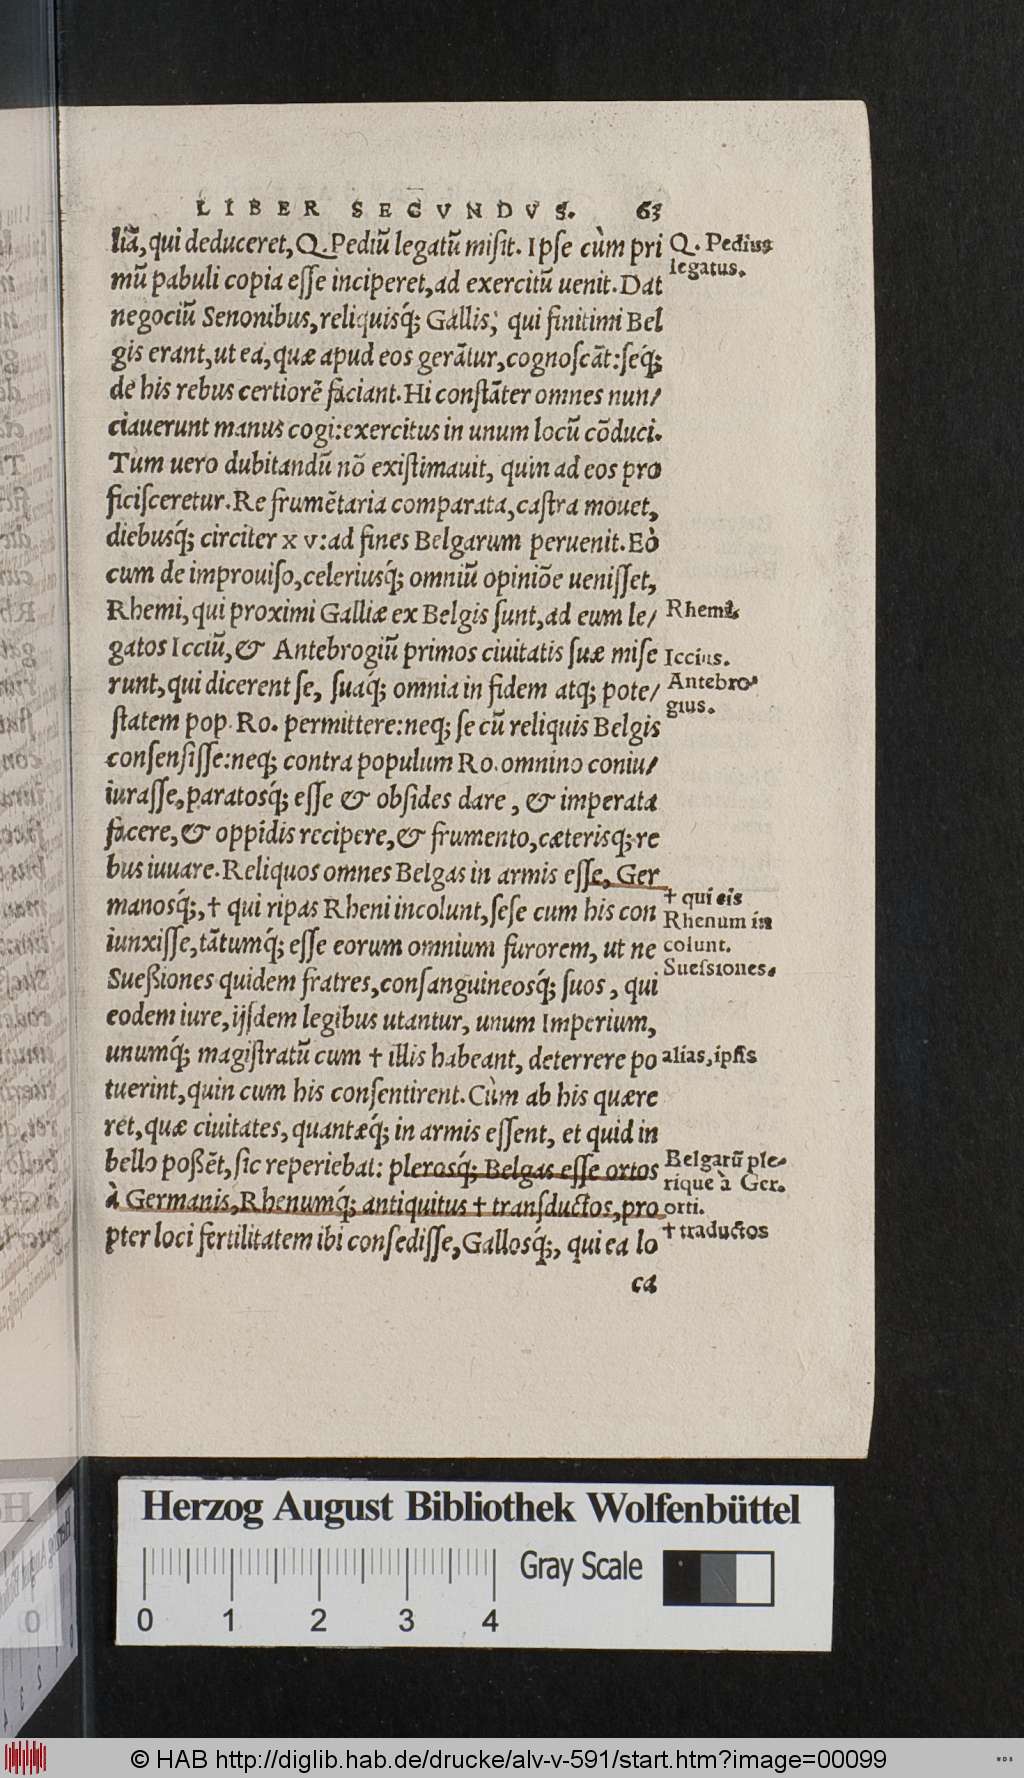 LIBER SECVNDVS. 63
liã, qui deduceret, Q. Pediũ legatũ misit. Ipse cùm pri
mũ pabuli copia esse inciperet, ad exercitũ uenit. Dat
negociũ Senonibus, reliquisq́; Gallis, qui finitimi Bel
gis erant, ut ea, quæ apud eos gerãtur, cognoscãt: seq́;
de his rebus certiorẽ faciant. Hi constãter omnes nun/
ciauerunt manus cogi: exercitus in unum locũ cõduci.
Tum uero dubitandũ nõ existimauit, quin ad eos pro
ficisceretur. Re frumẽtaria comparata, castra mouet,
diebusq́; circiter xv: ad fines Belgarum peruenit. Eò
cum de improuiso, celeriusq́; omniũ opiniõe uenisset,
Rhemi, qui proximi Galliæ ex Belgis sunt, ad eum le/
gatos Icciũ, & Antebrogiũ primos ciuitatis suæ mise
runt, qui dicerent se, suaq́; omnia in fidem atq; pote/
statem pop. Ro. permittere: neq; se cũ reliquis Belgis
consensisse: neq; contra populum Ro. omnino coniu/
iurasse, paratosq́; esse & obsides dare, & imperata
facere, & oppidis recipere, & frumento, cæterisq; re
bus iuuare. Reliquos omnes Belgas in armis esse, Ger
manosq́;, † qui ripas Rheni incolunt, sese cum his con
iunxisse, tãtumq́; esse eorum omnium furorem, ut ne
Sueßiones quidem fratres, consanguineosq́; suos, qui
eodem iure, ijsdem legibus utantur, unum Imperium,
unumq́; magistratũ cum † illis habeant, deterrere po
tuerint, quin cum his consentirent. Cùm ab his quære
ret, quæ ciuitates, quantæq́; in armis essent, et quid in
bello poßẽt, sic reperiebat: plerosq́; Belgas esse ortos
à Germanis, Rhenumq́; antiquitus † transductos, pro
pter loci fertilitatem ibi consedisse, Gallosq́;, qui ea lo
ca
Q. Pedius
legatus.
Rhemi.
Iccius.
Antebro-
gius.
† qui eis
Rhenum in
colunt.
Suessiones.
alias, ipsis
Belgarũ ple-
rique à Ger.
orti.
† traductos
Herzog August Bibliothek Wolfenbüttel
Gray Scale
0 1 2 3 4
© HAB http://diglib.hab.de/drucke/alv-v-591/start.htm?image=00099